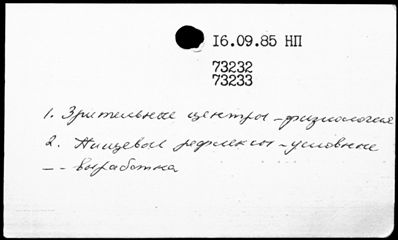 16.09.85 НП
73232
73233
1. Зрительные центры - физиология
2. Пищевые рефлексы - условные
-- выработка